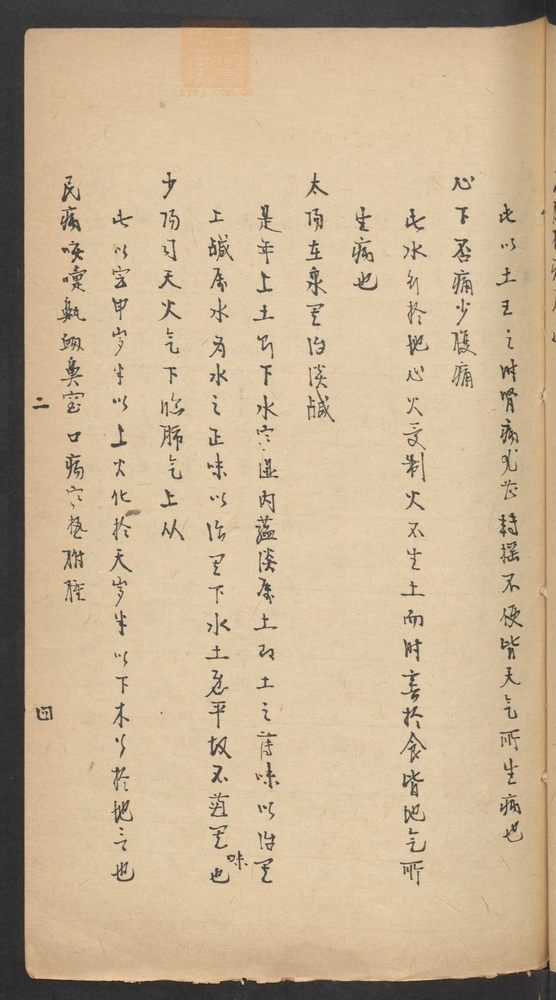 此以土王之时肾病尤甚转摇不便皆天气所生病也
心下否痛少腹痛
此水行於地心火受制火不生土而时害於食皆地气所
生病也
太阳在泉其治淡鹹
是年上土司下水寒湿内蕴淡属土即土之薄味以治其
上鹹属水为水之正味以治其下水土平故不其味也
少阳司天火气下临肺气上从
此以寅申岁半以上火化於天岁半以下木於地言也
民病咳嚏鼽衄鼻窒口疡寒热胕肿
二
四